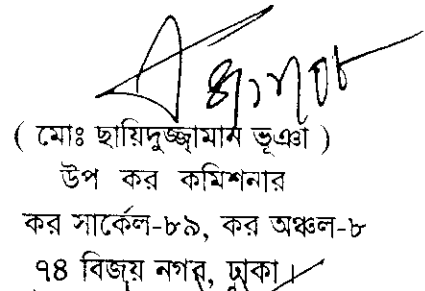 ( মোঃ ছায়িদুজ্জামান ভূঞা )
উপ কর কমিশনার
কর সার্কেল-৮৯, কর অঞ্চল-৮
৭৪ বিজয় নগর, ঢাকা।